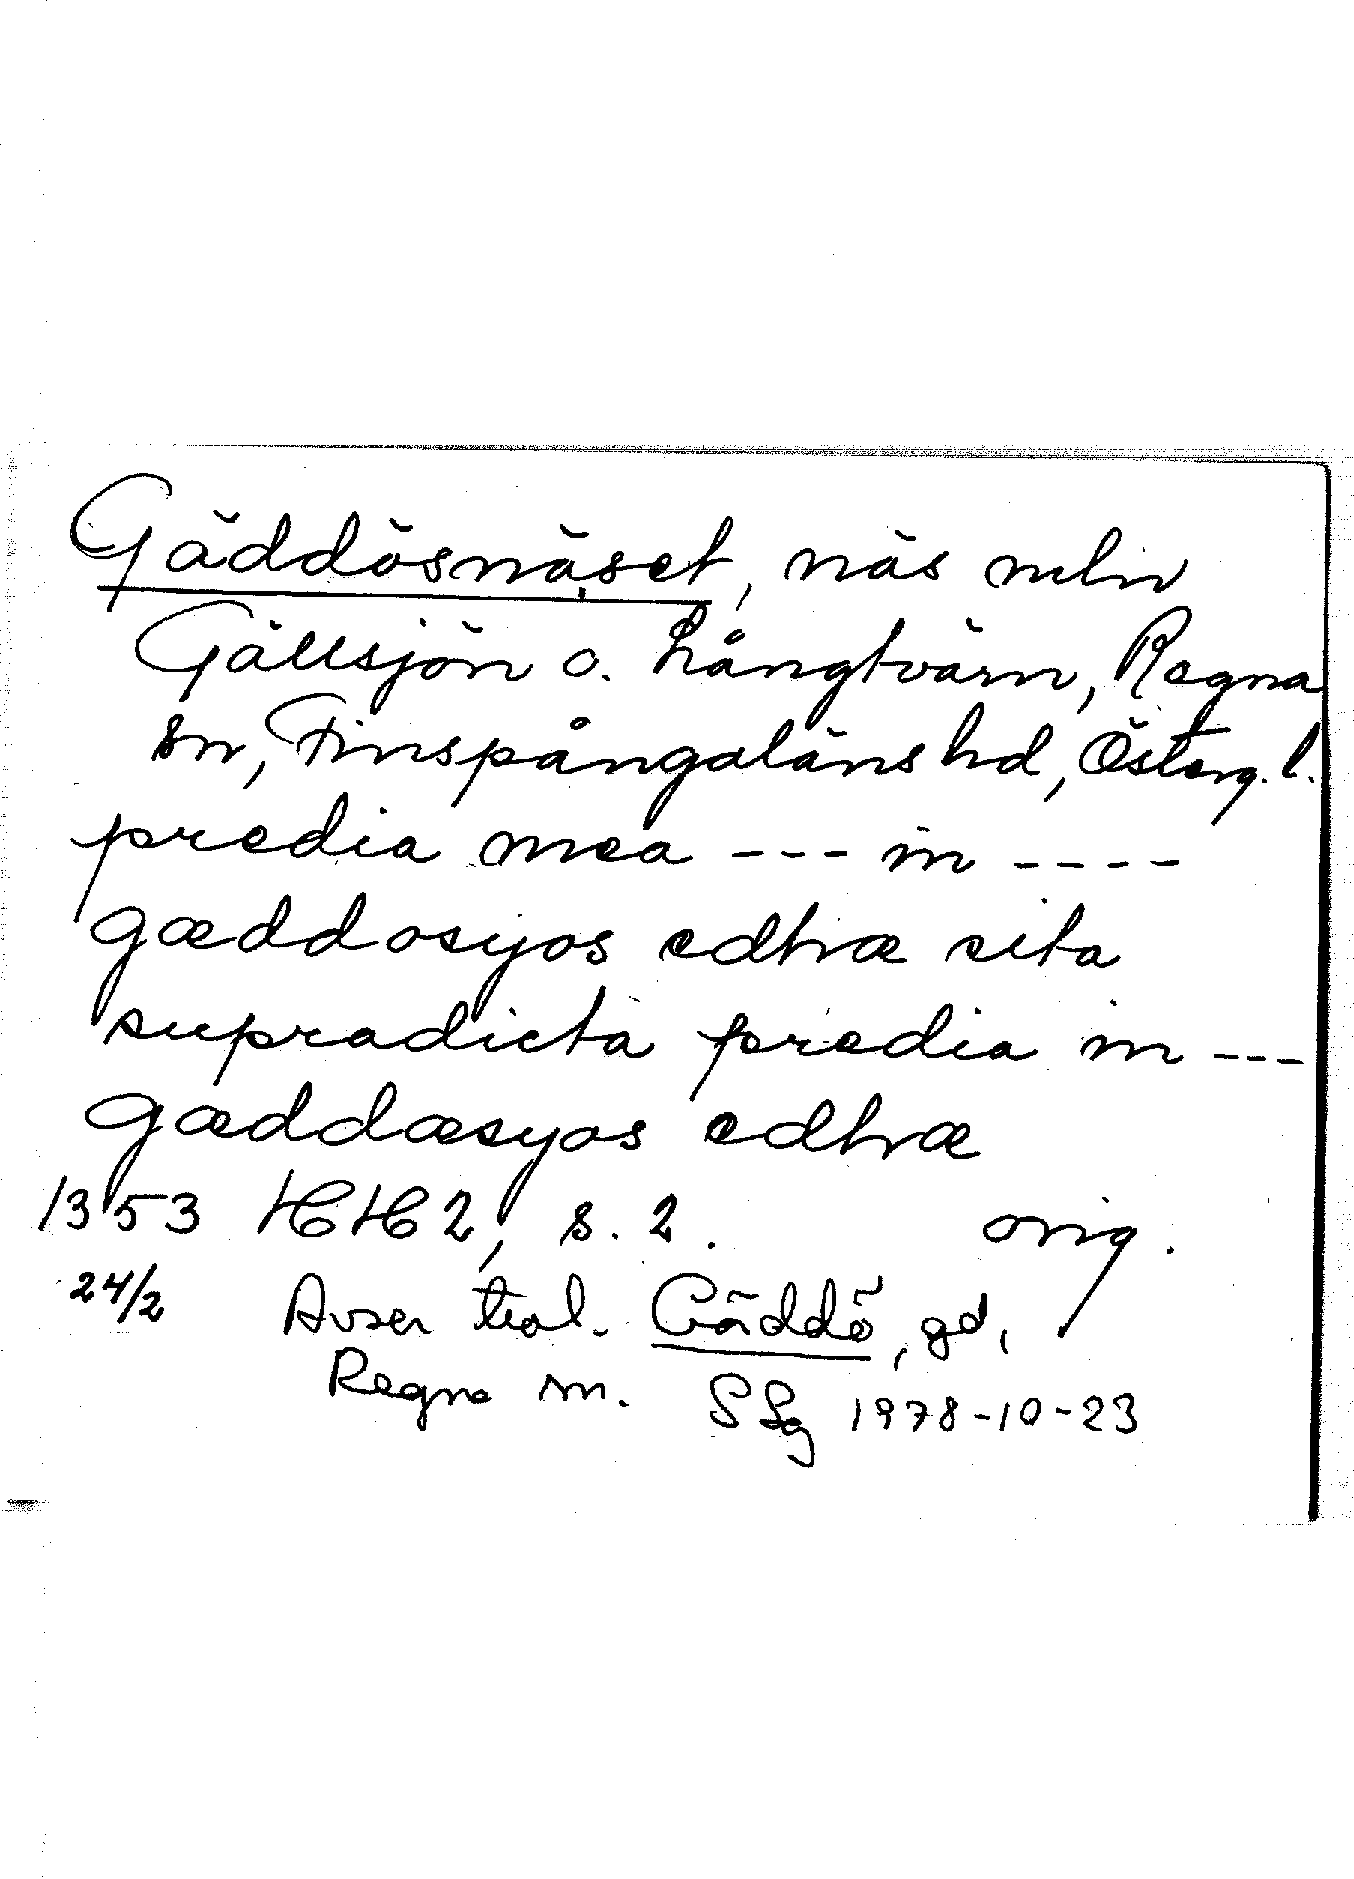 Gäddösnäset, näs mln
Gällsjön o. Långtvärn, Regna
sn, Finspångaläns hd, Österg. l.
predia mea --- in ----
gæddosyos edhæ sita
supradicta predia in ---
gæddæsyos edhæ
1353 HH 2, s. 2. orig.
24/2 Avser trol. Gäddö, gd,
Regna sn. 1978-10-23